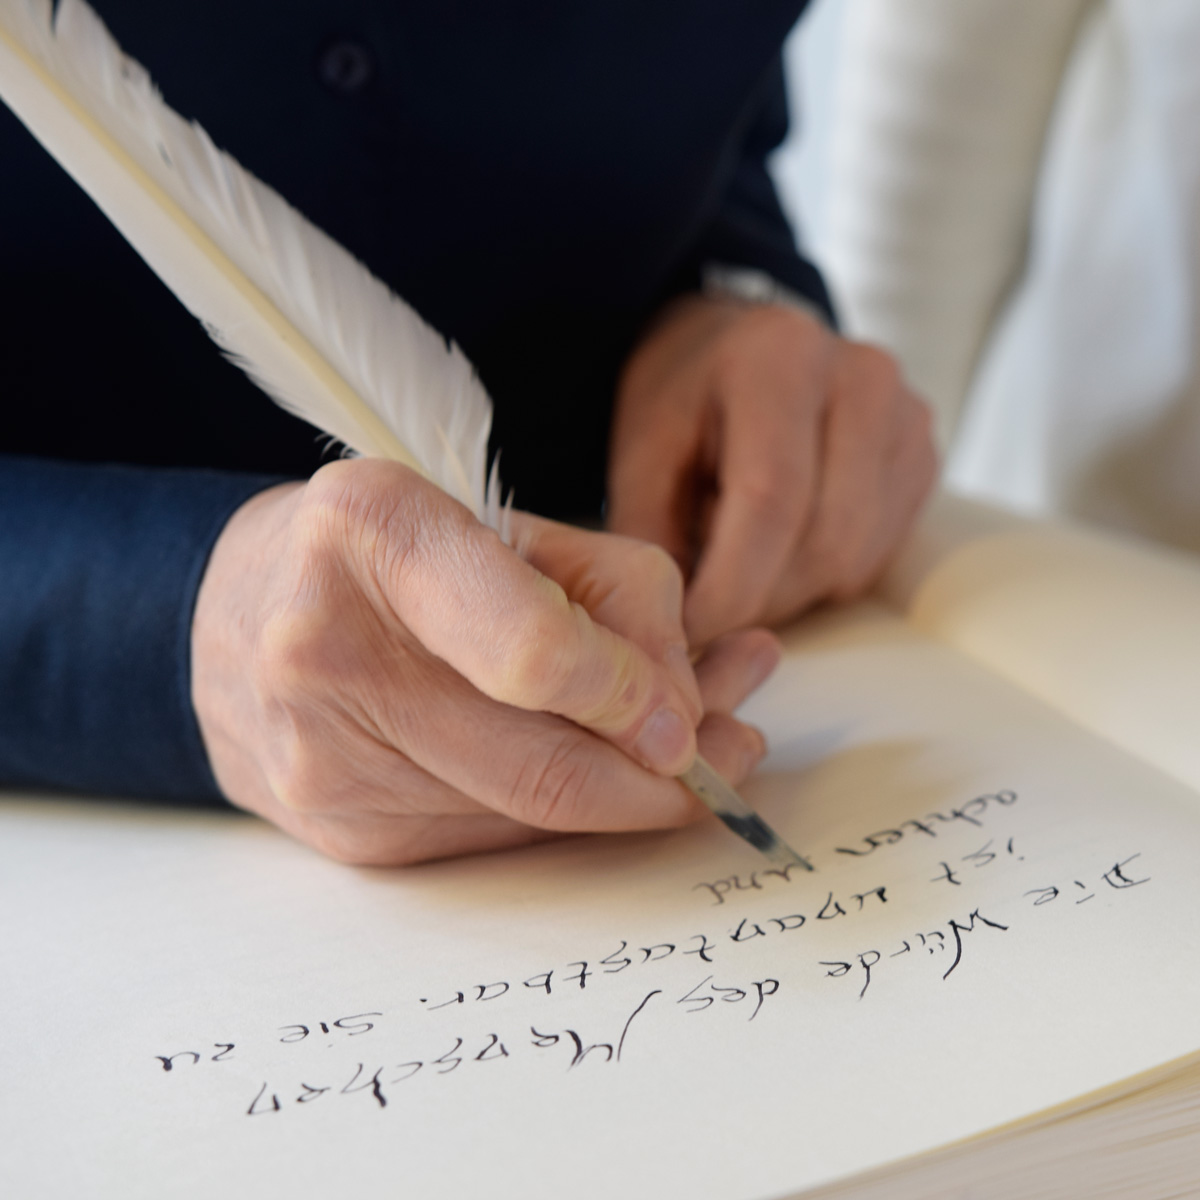 Die Würde des Menschen
ist unantastbar. Sie zu
achten und